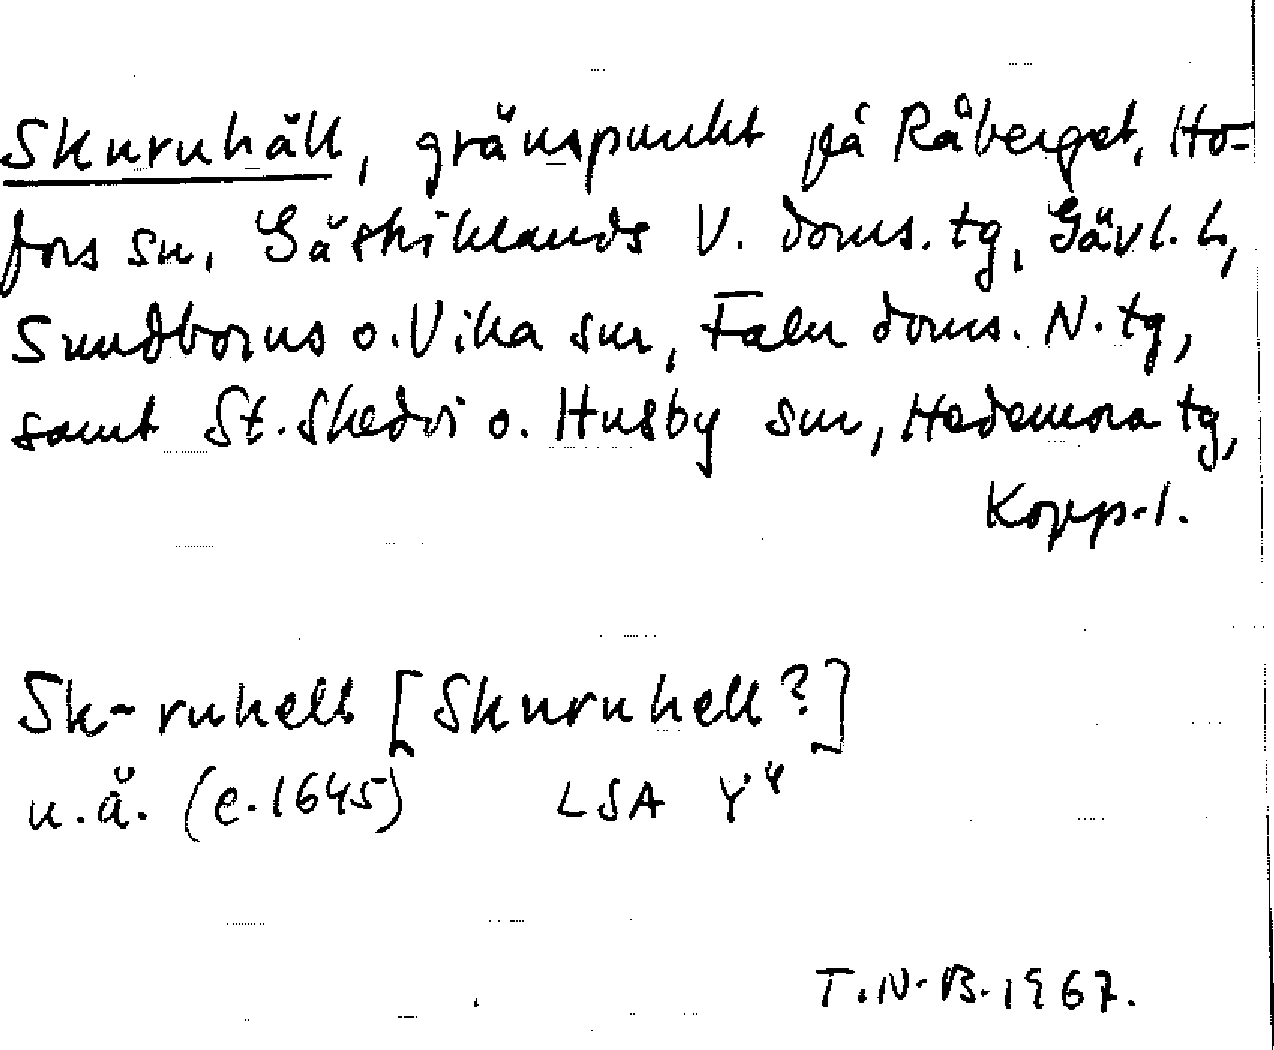 Skuruhäll, gränspunkt på Råberget, Ho-
fors sn, Gästriklands V. doms. tg, Gävl. l.,
Sundborns o. Vika snr, Falu doms. N. tg,
samt St. Skedvi o. Husby snr, Hedemora tg,
Kopp. l.
Sk-ruhell [Skuruhell?]
u.å. (c. 1645) LSA Y⁴
T.N.B. 1967.